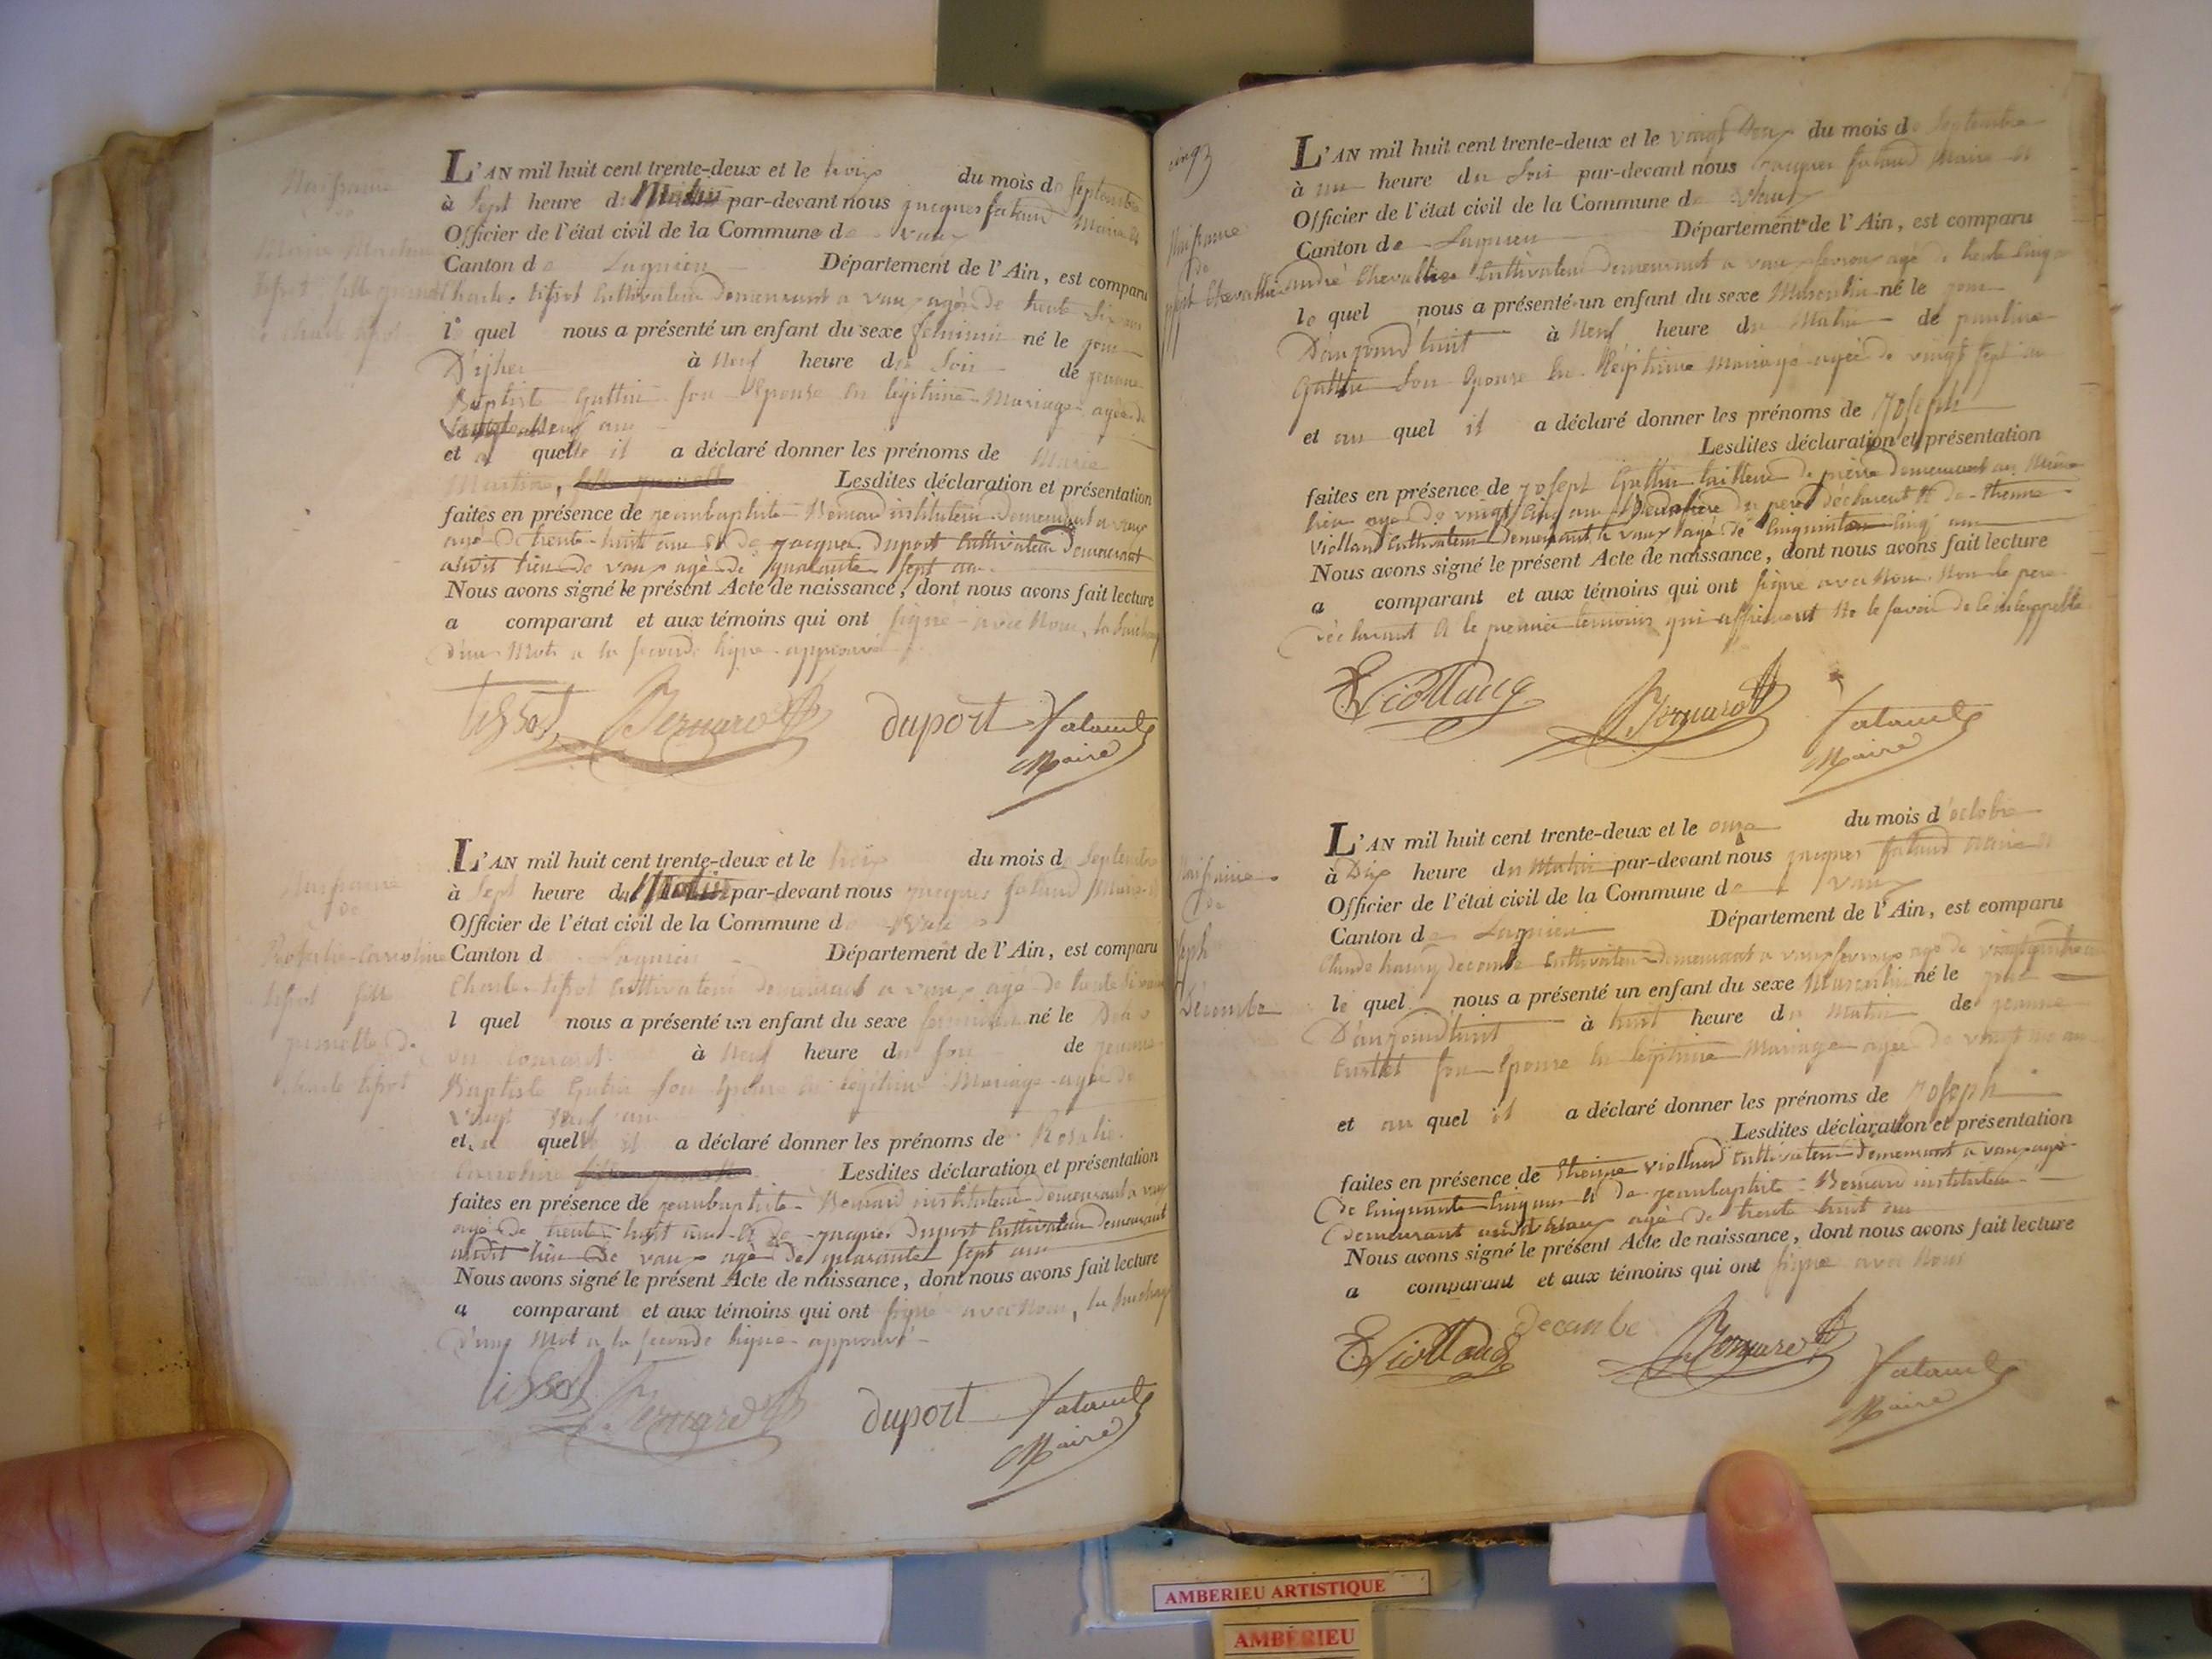 Naissance
de
Marie Martine
tissot fille
charle tissot
L'AN mil huit cent trente-deux et le trois du mois de Septembre
à Sept heure du Matin par-devant nous jacques fataud Maire et
Officier de l'état civil de la Commune de vaux
Canton de Lagnieu Département de l'Ain, est comparu
Charle tissot Cultivateur demeurant a vaux agé de trente Six ans
le quel nous a présenté un enfant du sexe feminin né le jour
D'yher à Neuf heure du Soir de jeanne
Baptiste Guttin son Epouse en légitime Mariage agée de
Vingt Neuf ans
et a quelle il a déclaré donner les prénoms de Marie
Martine, Lesdites déclaration et présentation
faites en présence de jeanbaptiste Bernard instituteur demeurant a vaux
agé de trente huit ans et de jacques duport Cultivateur demeurant
audit lieu de vaux agé de quarante Sept ans
Nous avons signé le présent Acte de naissance, dont nous avons fait lecture
a comparant et aux témoins qui ont Signé avec Nous, la Surcharge
d'un Mot a la seconde ligne approuvé
tissot Bernard duport fataud
Maire
Naissance
de
Rosalie Carroline
tissot fille
jumelle de
Charle tissot
L'AN mil huit cent trente-deux et le trois du mois de Septembre
à Sept heure du Matin par-devant nous jacques fataud Maire et
Officier de l'état civil de la Commune de vaux
Canton de Lagnieu Département de l'Ain, est comparu
Charle tissot Cultivateur demeurant a vaux agé de trente Six ans
l quel nous a présenté un enfant du sexe feminin né le Deux
du courant à Neuf heure du Soir de jeanne
Baptiste Guttin Son Epouse en légitime Mariage agée de
Vingt Neuf ans
et a quelle il a déclaré donner les prénoms de Rosalie
Carroline Lesdites déclaration et présentation
faites en présence de jeanbaptiste Bernard instituteur demeurant a vaux
agé de trente huit ans et de jacques duport Cultivateur demeurant
audit lieu de vaux agé de quarante Sept ans
Nous avons signé le présent Acte de naissance, dont nous avons fait lecture
a comparant et aux témoins qui ont Signé avec Nous, la Surcharge
d'un Mot a la seconde ligne approuvé
tissot Bernard duport fataud
Maire
Naissance
de
Chevallier
L'AN mil huit cent trente-deux et le vingt Deux du mois de Septembre
à une heure du Soir par-devant nous jacques fataud Maire et
Officier de l'état civil de la Commune de vaux
Canton de Lagnieu Département de l'Ain, est comparu
andré Chevallier Cultivateur demeurant a vaux fevroux agé de trente Cinq ans
le quel nous a présenté un enfant du sexe Masculin né le jour
D'aujourd'huit à Neuf heure du Matin de pauline
Guttin Son Epouse en Légitime Mariage agée de vingt Sept ans
et au quel il a déclaré donner les prénoms de Joseph
Lesdites déclaration et présentation
faites en présence de joseph Guttin tailleur de pierre demeurant au Même
lieu agé de vingt Cinq ans du pere déclarent et de Etienne
Violland Cultivateur demeurant a vaux agé de Cinquante Cinq ans
Nous avons signé le présent Acte de naissance, dont nous avons fait lecture
a comparant et aux témoins qui ont Signé avec Nous Non le pere
déclarant et le premier temoins qui affirment Ne le savoir de ce interppellé
E Violland Bernard fataud
Maire
Naissance
de
Joseph
Decombe
L'AN mil huit cent trente-deux et le onze du mois d'octobre
à Dix heure du Matin par-devant nous jacques fataud Maire et
Officier de l'état civil de la Commune de vaux
Canton de Lagnieu Département de l'Ain, est comparu
Claude decombe Cultivateur demeurant a vaux fevroux agé de
le quel nous a présenté un enfant du sexe Masculin né le jour
D'aujourd'huit à huit heure du Matin de jeanne
son Epouse en légitime Mariage agée de vingt ans
et au quel il a déclaré donner les prénoms de Joseph
Lesdites déclaration et présentation
faites en présence de Etienne Violland Cultivateur demeurant a vaux agé
de Cinquante Cinq ans et de jeanbaptiste Bernard instituteur
demeurant audit vaux agé de trente huit ans
Nous avons signé le présent Acte de naissance, dont nous avons fait lecture
a comparant et aux témoins qui ont Signé avec Nous
E Violland decombe Bernard fataud
Maire
AMBERIEU ARTISTIQUE
AMBERIEU